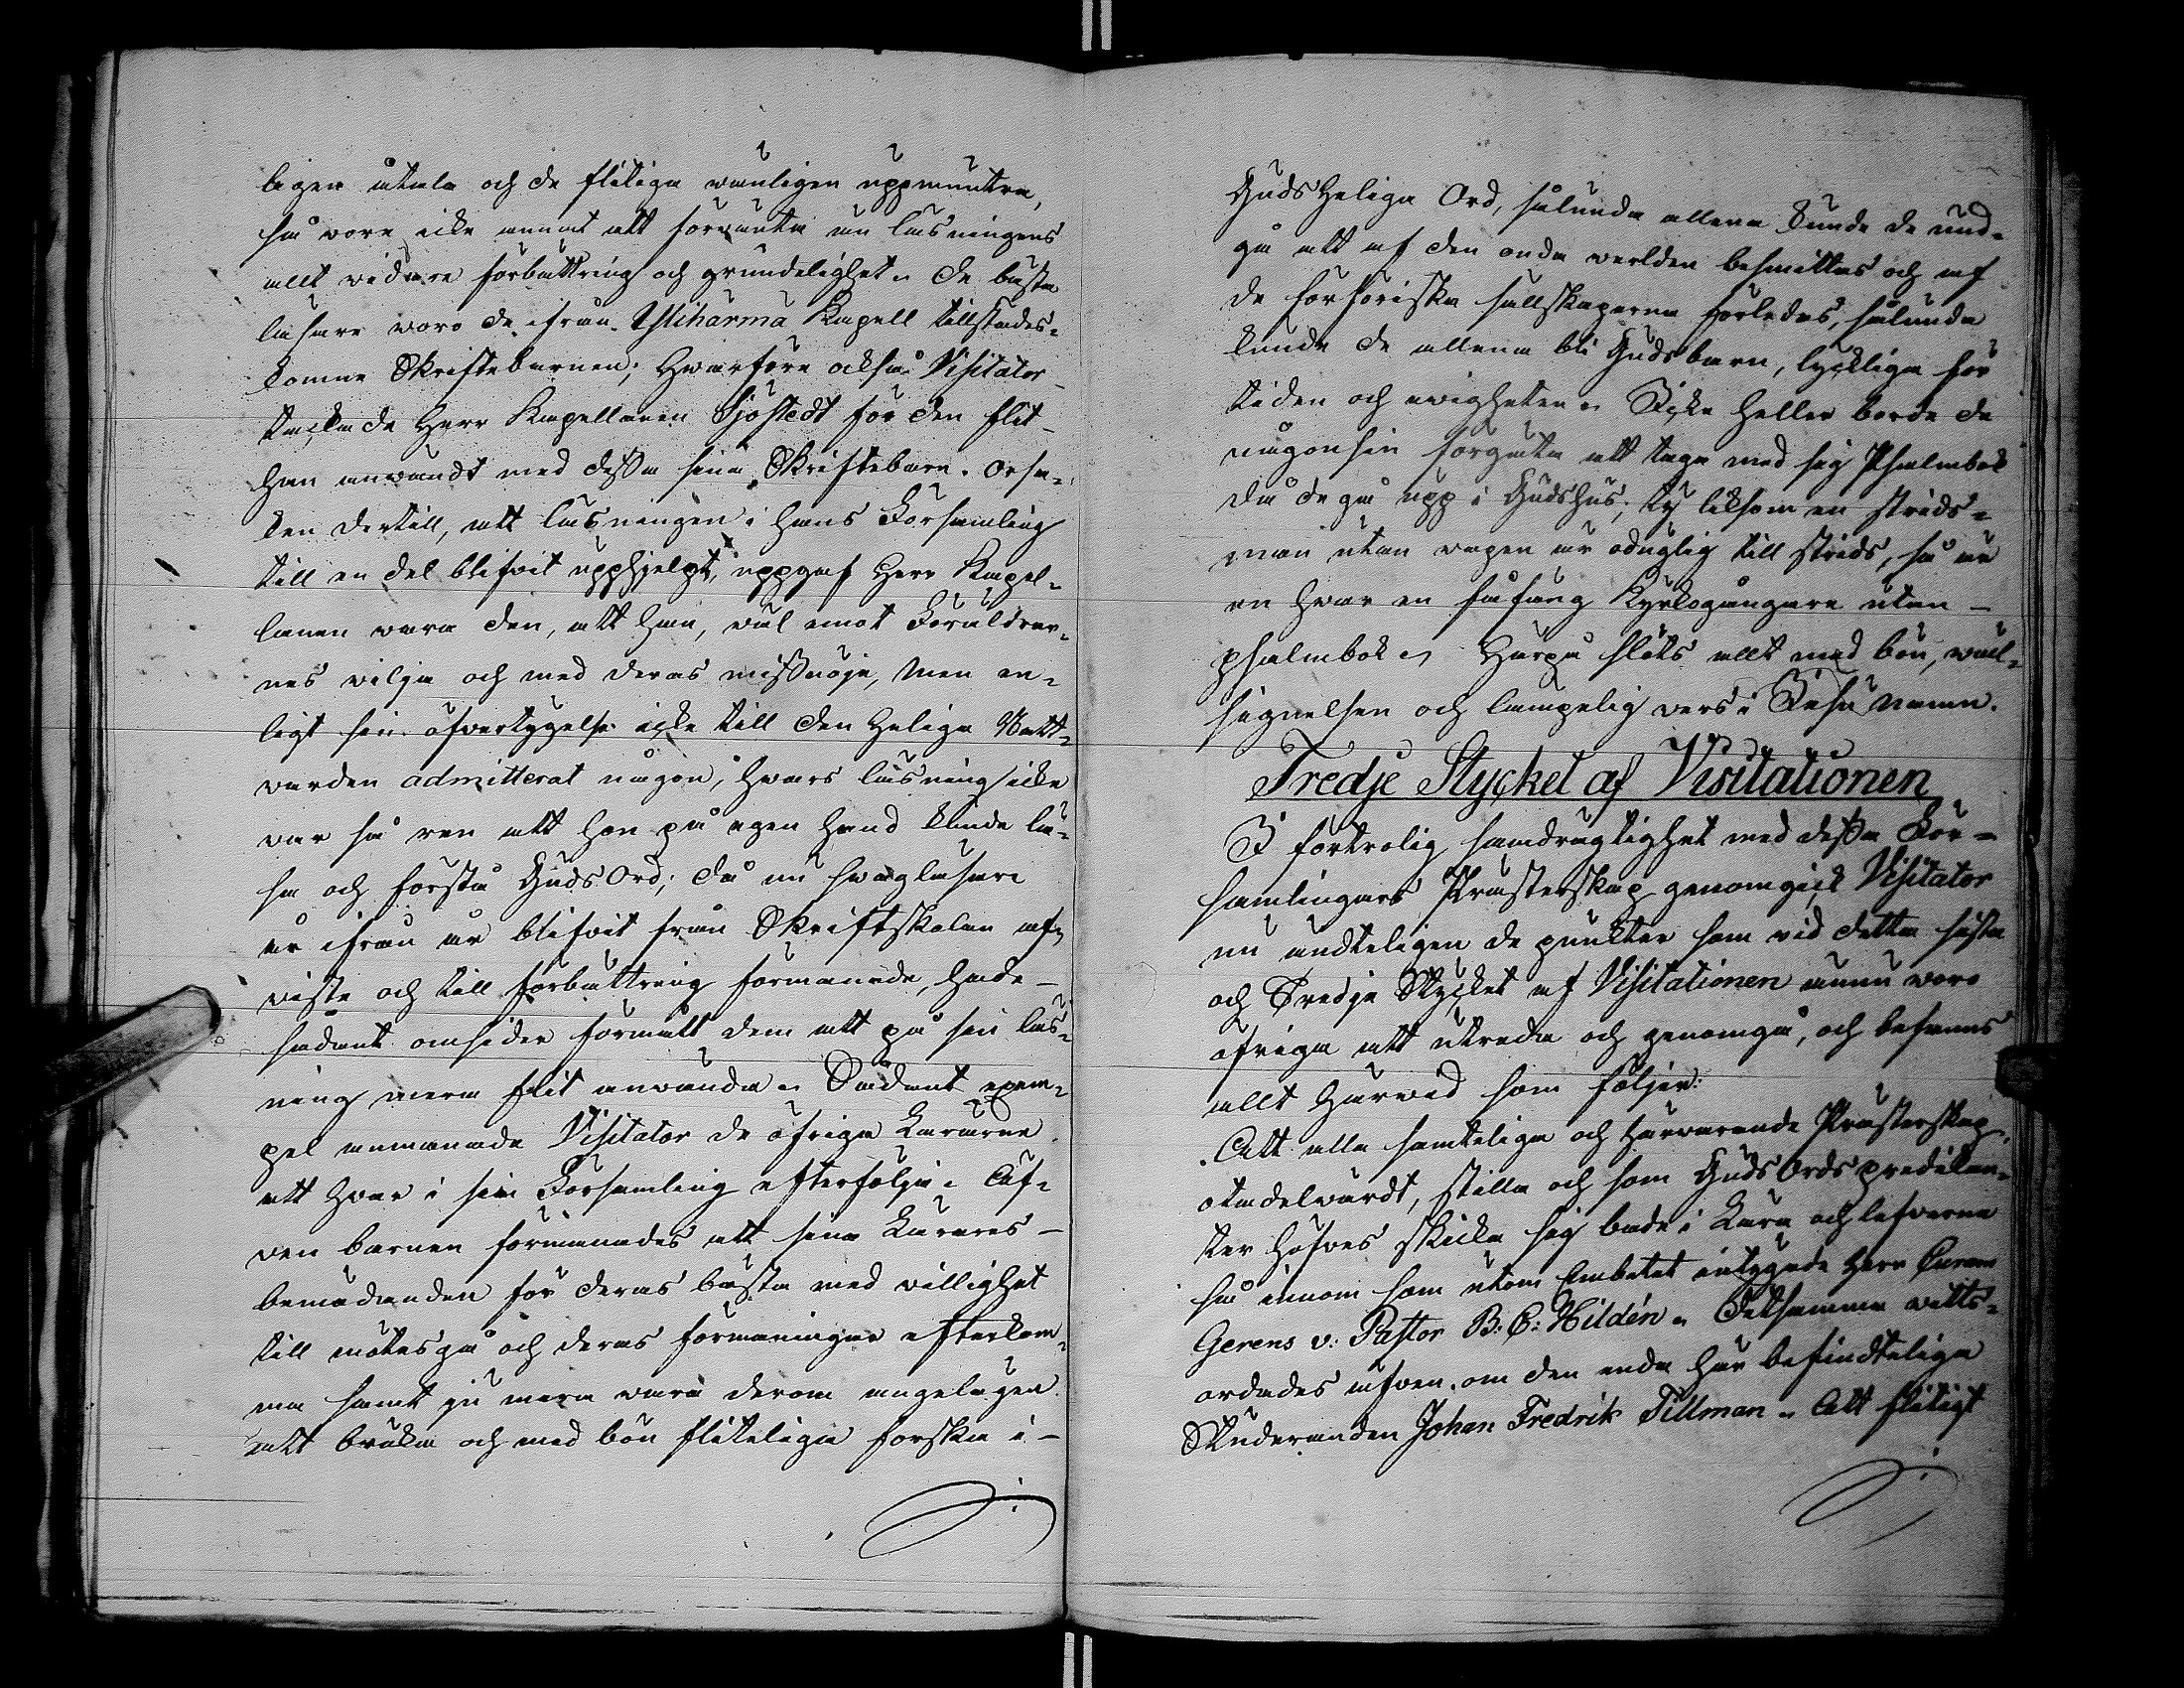 ligen åtala och de flitiga vänligen uppmuntra,
så vore icke annat att förvänta än läsningens
allt vidare förbättring och grundelighet. De bästa
läsare voro de ifrån Ylihärmä Kapell tillstädes-
komne Skriftebarnen; Hvarföre också Visitator
tackade Herr Kapellanen Sjöstedt för den flit
han användt med dessa sina Skriftebarn. Orsa-
ken dertill, att läsningen i hans Församling
till en del blifvit upphjelpt, uppgaf Herr Kapel-
lanen vara den, att han, väl emot Föräldrar-
nes vilja och med deras missnöje, men en-
ligt sin öfvertygelse icke till den Heliga Natt-
varden admitterat någon, hvars läsning icke
var så ren att han på egen hand kunde lä-
sa och förstå Guds Ord; då nu svagläsare
år ifrån år blifvit från Skriftskolan af-
viste och till förbättring förmanade, hade
sådant omsider förmått dem att på sin läs-
ning mera flit använda. Sådant exem-
pel anmanade Visitator de öfriga Lärarne
att hvar i sin Församling efterfölja. Äf-
ven barnen förmanades att sina Lärares
bemödanden för deras bästa med villighet
till mötesgå och deras förmaningar efterkom-
ma samt ju mera vara derom angelägen
att bruka och med bön fliteliga forska i
Guds Heliga Ord, sålunda allena kunde de und-
gå att af den onda verlden besmittas och af
de förföriska sällskaperna förledas, sålunda
kunde de allena bli Guds barn, lyckliga för
tiden och evigheten. Icke heller borde de
någonsin förgäta att taga med sig Psalmbok
då de gå upp i Guds hus; ty liksom en strids-
man utan vapen är oduglig till strids, så är
en hvar en fåfäng Kyrkogångare utan
psalmbok. Härpå slöts allt med bön, väl-
signelsen och lämpelig vers i Jesu namn.
Tredje Stycket af Visitationen
I förtrolig samdrägtighet med dessa För-
samlingars Prästerskap genomgick Visitator
nu ändteligen de punkter som vid detta sista
och Tredje Stycket af Visitationen ännu voro
öfriga att utreda och genomgå, och befanns
allt härvid som följer:
Att alla samteliga och härvarande Prästerskap
otadelvärdt, stilla och som Guds Ords predikan-
ter höfves skicka sig både i Lära och lefverne
så innom som utom Embetet intygade Herr Curam
Gerens v: Pastor B: E: Hildén. Detsamma vitts-
ordades äfven om den enda här befindteliga
Studeranden Johan Fredrik Tillman. Att flitigt